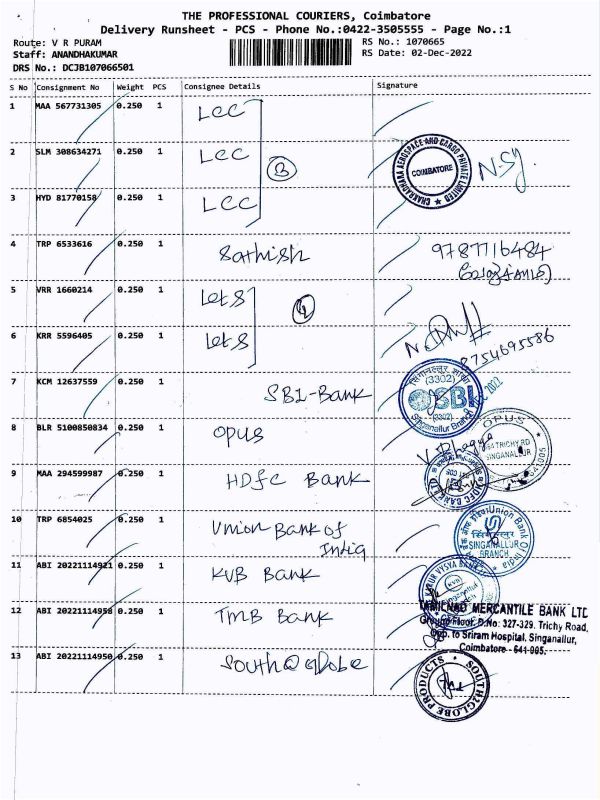 THE PROFESSIONAL COURIERS, Coimbatore
Delivery Runsheet - PCS - Phone No.:0422-3505555 - Page No.:1
Route: V R PURAM
RS No.: 1070665
Staff: ANANDHAKUMAR
RS Date: 02-Dec-2022
DRS No.: DCJB107066501
S No Consignment No Weight PCS Consignee Details Signature
1 MAA 567731305 0.250 1 LCC
2 SLM 308634271 0.250 1 LCC
3
CHAKRADHARA AEROSPACE AND CARGO PRIVATE LIMITED
COIMBATORE
3 HYD 81770158 0.250 1 LCC
4 TRP 6533616 0.250 1 Sathish 9787716484
5 VRR 1660214 0.250 1 Lets
6 KRR 5596405 0.250 1 Lets
8754695586
7 KCM 12637559 0.250 1 SBI-Bank
(3302)
SBI
(3302)
Singanallur Branch
2022
8 BLR 5100850834 0.250 1 OPUS
OPUS
TRICHY RD
SINGANALLUR
641005
9 MAA 294599987 0.250 1 HDFC Bank
HDFC BANK LTD
10 TRP 6854025 0.250 1 Union Bank of
India
Union Bank Of India
SINGANALLUR
BRANCH
11 ABI 20221114921 0.250 1 KVB Bank
KARUR VYSYA BANK
12 ABI 20221114958 0.250 1 TMB Bank
TAMILNAD MERCANTILE BANK LTD
Ground Floor, D.No: 327-329, Trichy Road,
Opp. to Sriram Hospital, Singanallur,
Coimbatore - 641 005.
13 ABI 20221114950 0.250 1 South@globe
SOUTH2GLOBE PRODUCTS